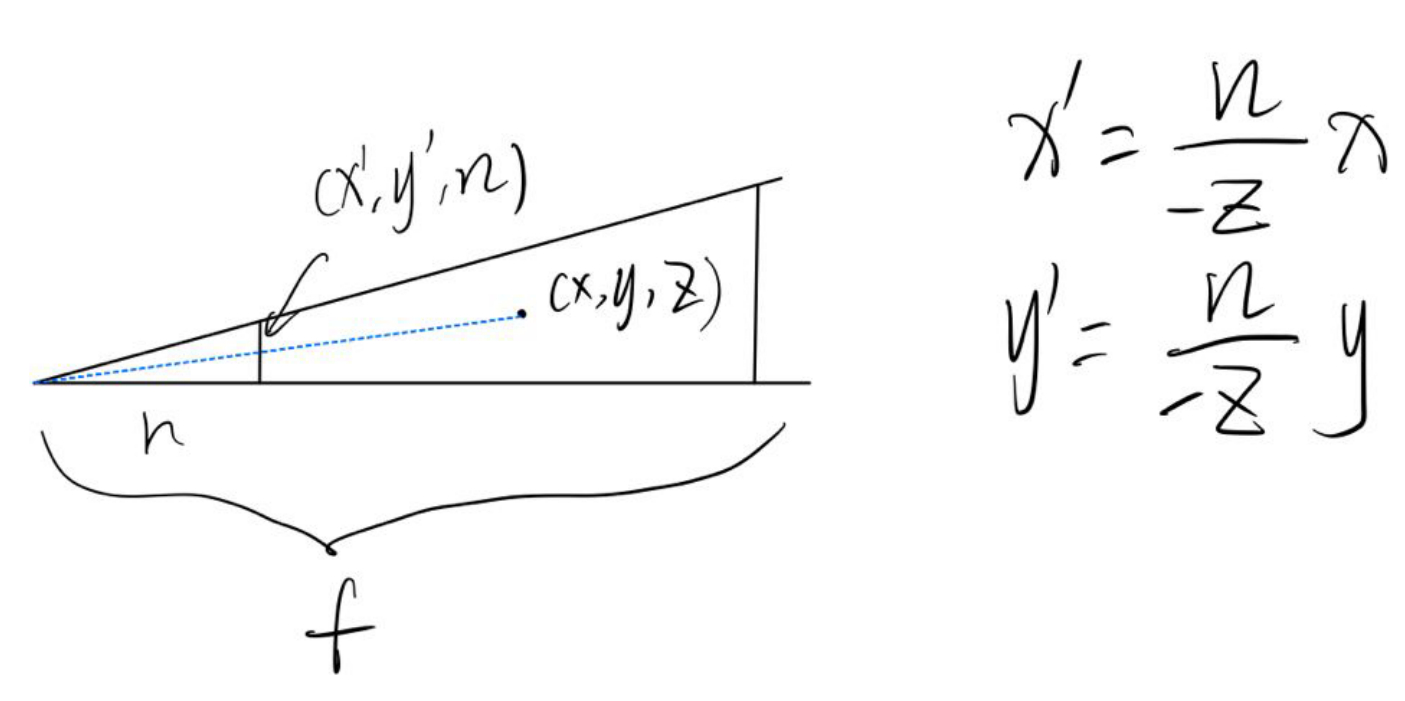 (x', y', n)
(x, y, z)
n
f
x' = n / -z x
y' = n / -z y